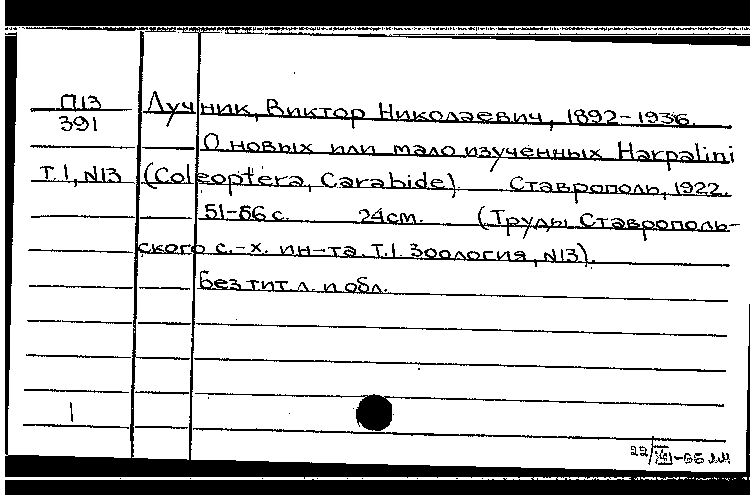 П13 Лучник, Виктор Николаевич, 1892-1936.
391
О новых или мало изученных Harpalini
Т.1, N13 (Coleoptera, Carabide). Ставрополь, 1922.
51-56 с. 24см. (Труды Ставрополь-
ского с.-х. ин-та. Т.1. Зоология, N13).
Без тит. л. и обл.
1